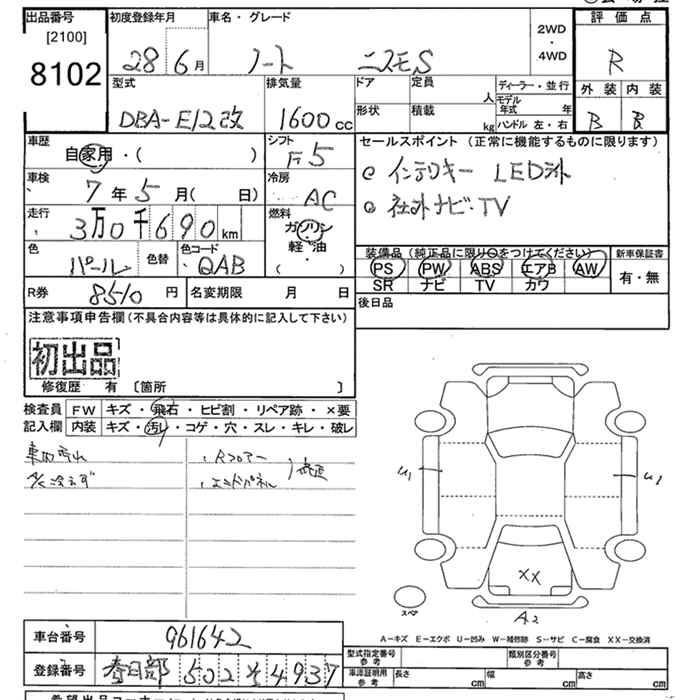 出品番号 初度登録年月 車名・グレード 評価点
[2100] 28 6月 ノート ニスモS 2WD・4WD R
8102
型式 排気量 ドア 定員 人 ディーラー・並行 外装 内装
DBA-E12改 1600cc 形状 積載 kg モデル年式 年 ハンドル 左・右 B B
車歴 シフト セールスポイント(正常に機能するものに限ります)
自家用・( ) F5
車検 冷房 インテリキー LEDライト
7年5月( 日) AC 社外ナビ・TV
走行 燃料
3万0千690km ガソリン
軽油
( )
色 色替 色コード 装備品(純正品に限り○をつけてください) 新車保証書
パール QAB PS PW ABS エアB AW 有・無
SR ナビ TV カワ
R券 8510円 名変期限 月 日 後日品
注意事項申告欄(不具合内容等は具体的に記入して下さい)
初出品
修復歴 有 〔箇所 〕
検査員 FW キズ・飛石・ヒビ割・リペア跡・×要
記入欄 内装 キズ・汚レ・コゲ・穴・スレ・キレ・破レ
車内汚れ ・Rフロアー
A/C冷えず ・エンドパネル 修正
U1 U1
XX
スペア A2
A-キズ E-エクボ U-凹み W-補修跡 S-サビ C-腐食 XX-交換済
車台番号 961642
型式指定番号 参考 類別区分番号 参考
登録番号 春日部 502 そ 4937
車庫証明用 参考 長さ cm 幅 cm 高さ cm